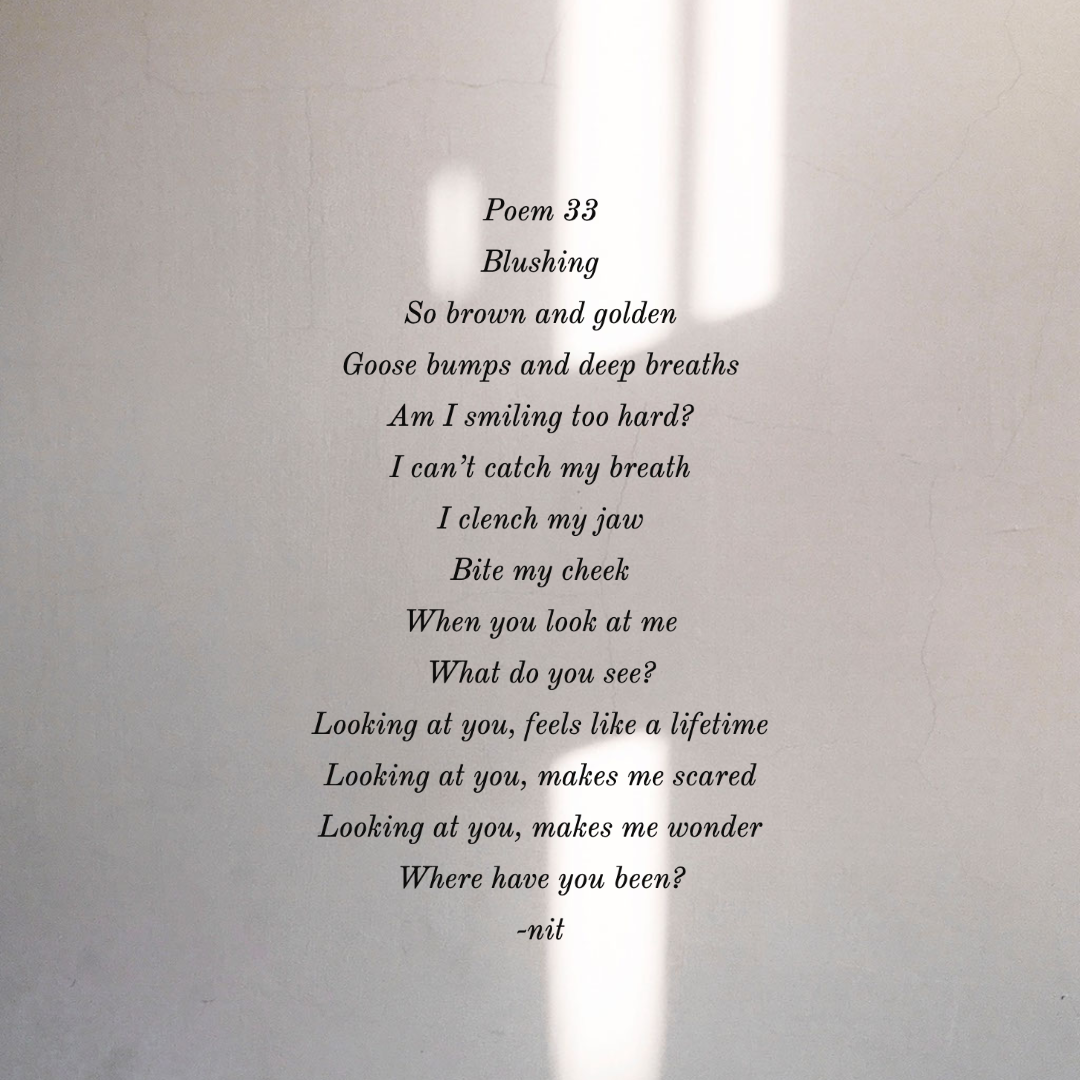 Poem 33
Blushing
So brown and golden
Goose bumps and deep breaths
Am I smiling too hard?
I can’t catch my breath
I clench my jaw
Bite my cheek
When you look at me
What do you see?
Looking at you, feels like a lifetime
Looking at you, makes me scared
Looking at you, makes me wonder
Where have you been?
-nit